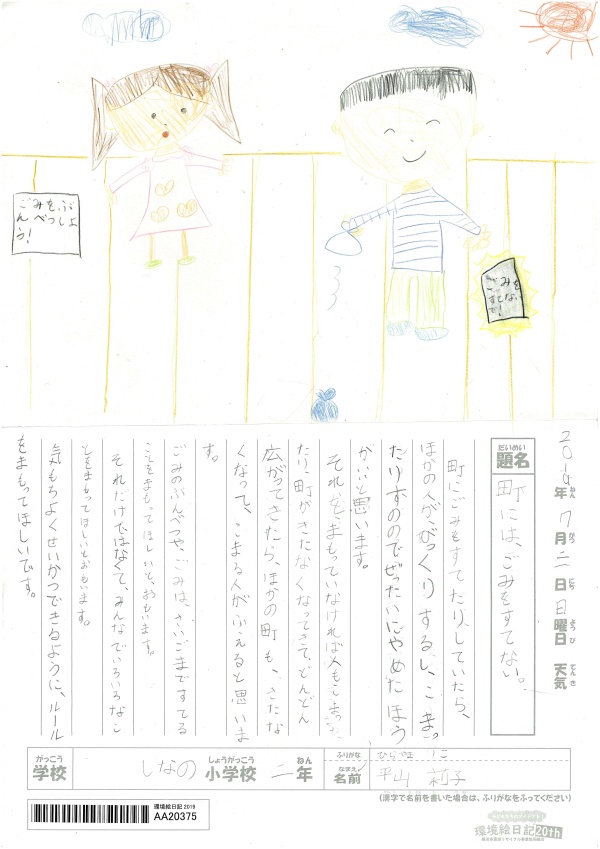 ごみをぶ
んべつしよ
う!
ごみを
すてない
で!
2019年ねん 7月がつ 二日にち 日曜日ようび 天気てんき
題名だいめい 町には、ごみをすてない。
町にごみをすてたりしていたら、
ほかの人が、びっくりするし、こまっ
たりするのでぜったいにやめたほう
がいいと思います。
それをまもっていなければ人もこまっ
たり、町がきたなくなってきて、どんどん
広がってきたら、ほかの町も、きたな
くなって、こまる人がふえると思いま
す。
ごみのぶんべつや、ごみは、さいごまですてる
ことをまもってほしいと、おもいます。
それだけではなくて、みんなでいろいろなこ
とをまもってほしいとおもいます。
気もちよくせいかつできるように、ルール
をまもってほしいです。
学校がっこう しなの 小学校しょうがっこう 二年ねん
ふりがな ひらやま りこ
名前なまえ 平山 莉子
(漢字で名前を書いた場合は、ふりがなをふってください)
環境絵日記 2019
AA20375
環境絵日記20th